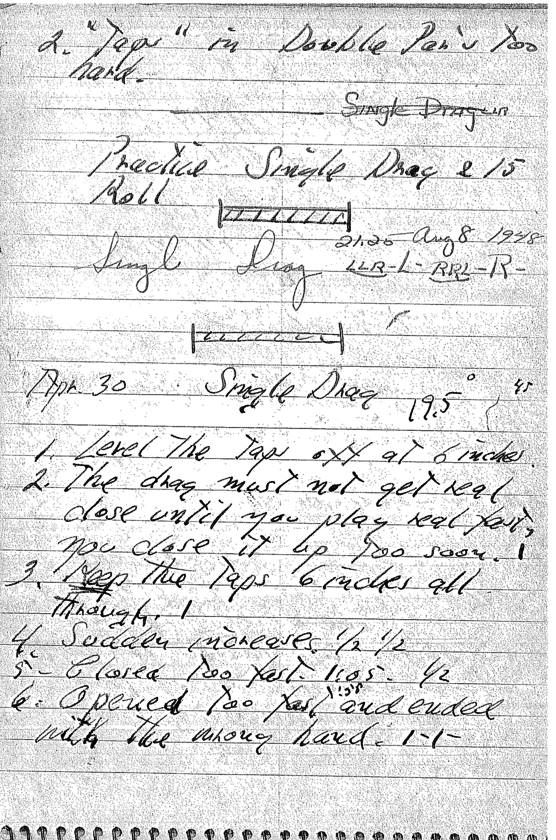 2. "Taps" in Double Par's Too
hard.
Single Drag
Practice Single Drag & 15
Roll
Aug 8 1948
Singl Drag LLR-L-RRL-R-
Apr. 30 Single Drag 19.5° { 45
1. Level The Taps off at 6 inches.
2. The drag must not get real
close until you play real fast,
you close it up Too soon. 1
3. Keep the Taps 6 inches all
Through. 1
4. Sudden increases. 1/2 1/2
5- Closed Too fast. 1:05. 1/2
6. Opened Too fast and ended
with the wrong hand. 1-1-